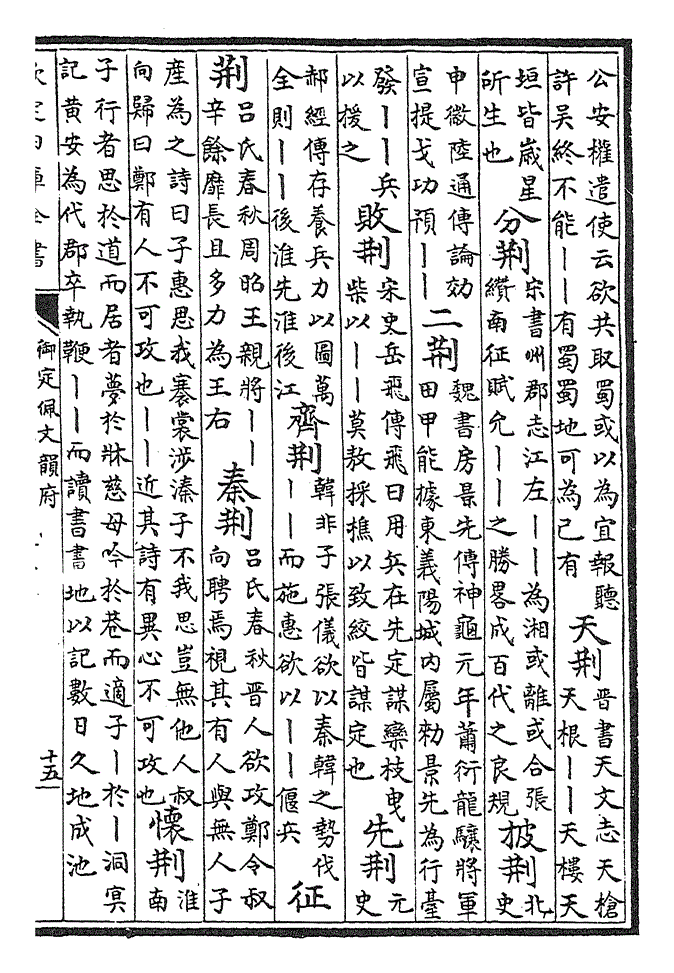 公安權遣使云欲共取蜀或以為宜報聽
許吳終不能丨丨有蜀蜀地可為己有
天荆
晉書天文志天槍
天根丨丨天樓天
垣皆歲星
所生也
分荆
宋書州郡志江左丨丨為湘或離或合張
纘南征賦允丨丨之勝畧成百代之良規
披荆
北
史
申徽陸通傳論効
宣提戈功預丨丨
二荆
魏書房景先傳神龜元年蕭衍龍驤將軍
田甲能據東義陽城内屬勑景先為行臺
發丨丨兵
以援之
敗荆
宋史岳飛傳飛曰用兵在先定謀欒枝曳
柴以丨丨莫敖採樵以致絞皆謀定也
先荆
元
史
郝經傳存養兵力以圖萬
全則丨丨後淮先淮後江
齊荆
韓非子張儀欲以秦韓之勢伐
丨丨而施惠欲以丨丨偃兵
征
荆
呂氏春秋周昭王親將丨丨
辛餘靡長且多力為王右
秦荆
呂氏春秋晉人欲攻鄭令叔
向聘焉視其有人與無人子
產為之詩曰子惠思我褰裳涉溱子不我思豈無他人叔
向歸曰鄭有人不可攻也丨丨近其詩有異心不可攻也
懷荆
淮
南
子行者思於道而居者夢於牀慈母吟於巷而適子丨於丨洞冥
記黃安為代郡卒執鞭丨丨而讀書書地以記數日久地成池
欽定四庫全書
御定佩文韻府
十五